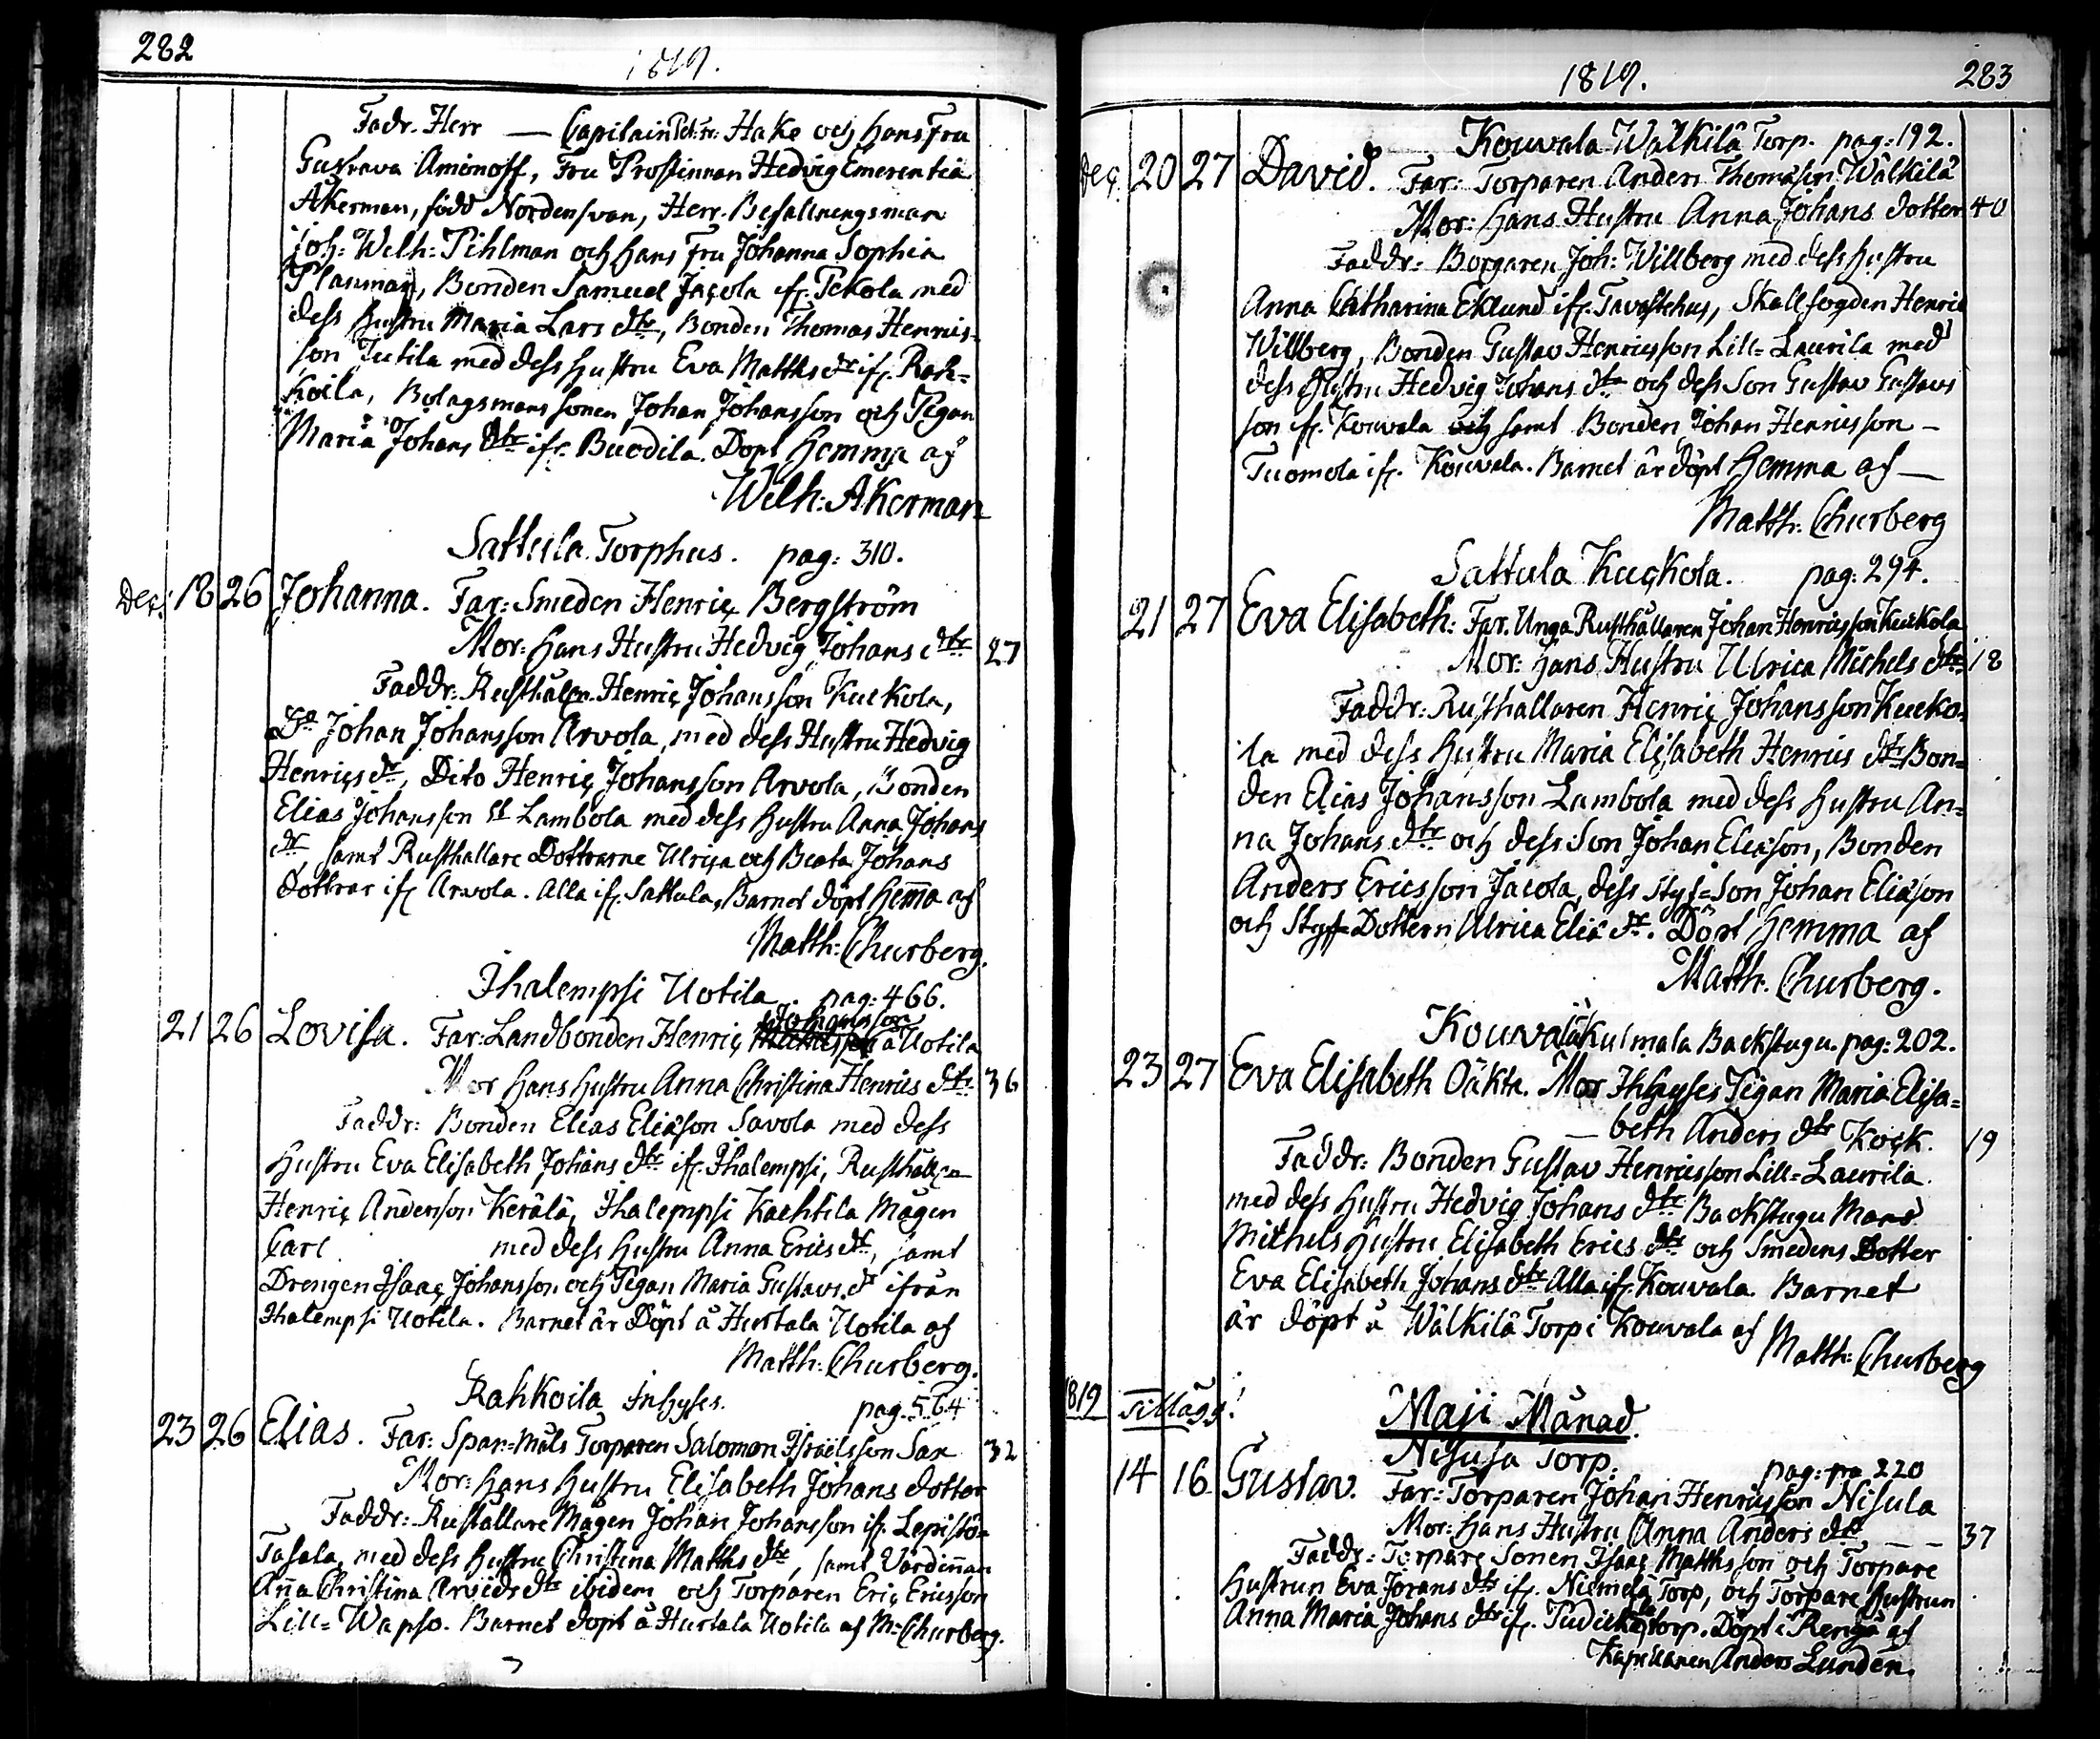 282
1819.
Fadr. Herr — Capitain Pet: Fr: Hake och hans Fru
Gustava Aminoff, Fru Prostinnan Hedvig Emerentia
Åkerman, född Nordensvan, Herr Befallningsman
Joh: Welh: Pihlman och hans Fru Johanna Sophia
Planman, Bonden Samuel Jacola ifr. Pekola med
dess Hustru Maria Lars dtr, Bonden Thomas Henrics-
son Jutila med dess hustru Eva Matths dr ifr. Rah-
Koila, Bolagsmans sonen Johan Johansson och Pigan
Maria Johans dtr ifr. Buodila. Döpt Hemma af
Wilh: Åkerman
Sattula Torphus. pag: 310.
Dec: 18 26 Johanna. Far: Smeden Henric Bergström
Mor: hans Hustru Hedvig Johans dtr 27
Faddr: Rusthållrn. Henric Johansson Kuckola,
Do Johan Johansson Arvola, med dess Hustru Hedvig
Henrics dr, Dito Henric Johansson Arvola, Bonden
Elias Johansson Lambola med dess hustru Anna Johans
dr, samt Rusthållare Döttrarne Ulrica och Beata Johans
Döttrar ifr Arvola. Alla ifr. Sattula, Barnet döpt Hemma af
Matth: Churberg.
Ihalempsi Uotila. pag: 466.
21 26 Lovisa. Far: Landbonden Henric Johansson å Uotila
Mor hans hustru Anna Christina Henrics dtr. 36
Faddr: Bonden Elias Eliæson Savola med dess
Hustru Eva Elisabeth Johans dtr ifr. Ihalempsi, Rusthållrn
Henric Anderson Kerälä, Ihalempsi Kachtila Mågen
Carl med dess hustru Anna Erics dr, samt
Drengen Isaac Johansson och Pigan Maria Gustavs dr ifrån
Ihalempsi Uotila. Barnet är Döpt å Hurtala Uotila af
Matth: Churberg.
Rahkoila Inhyses. pag. 564
23 26 Elias. Far: Span-Måls Torparen Salomon Israëlsson Sax 32
Mor: hans hustru Elisabeth Johans dotter
Faddr: Rustållare Mågen Johan Johansson ifr. Lepistö-
Tasala, med dess hustru Christina Matths dtr, samt Värdinnan
Anna Christina Arvids dtr ibidem och Torparen Eric Ericsson
Lill= Wapso. Barnet döpt å Hurtala Uotila af M: Churberg.
1819.
283
Kouvala Walkilä Torp. pag: 192.
Dec. 20 27 David. Far: Torparen Anders Thomasson Wälkilä
Mor: hans Hustru Anna Johans dotter 40
Faddr: Borgaren Joh: Willberg med dess hustru
Anna Catharina Eklund ifr. Tavastehus, Skallfogden Henric
Willberg, Bonden Gustav Henricsson Lill= Laurila med
dess Hustru Hedvig Johans dtr och dess Son Gustav Gustavs
son ifr. Kouvala och samt Bonden Johan Henricsson -
Tuomola ifr. Kouvala. Barnet är döpt Hemma af —
Matth: Churberg
Sattula Kuckola. pag: 294.
21 27 Eva Elisabeth: Far. Unga Rusthållaren Johan Henricsson Kuckola
Mor: hans Hustru Ulrica Michels dtr 18
Faddr: Rusthållaren Henric Johansson Kucko-
la med dess hustru Maria Elisabeth Henrics dtr Bon-
den Elias Johansson Lambola med dess hustru An-
na Johans dtr och dess Son Johan Eliæson, Bonden
Anders Ericsson Jacola, dess Styf=Son Johan Eliæson
och Styf=Dottern Ulrica Eliæ dr. Döpt Hemma af
Matth. Churberg.
Kouvala Kulmala Backstugu. pag: 202.
23 27 Eva Elisabeth Oäkta. Mor Inhyses Pigan Maria Elisa-
beth Anders dtr Kock. 19
Faddr: Bonden Gustav Henricsson Lill= Laurila
med dess hustru Hedvig Johans dtr Backstugu Mans
Michels hustru Elisabeth Erics dtr och Smedens Dotter
Eva Elisabeth Johans dtr Alla ifr. Kouvala. Barnet
är döpt å Wälkilä Torp i Kouvala af
Matth: Churberg
1819 Tillägg!
Maji Månad.
Nisula Torp. pag: 220
14 16 Gustav. Far: Torparen Johan Henricsson Nisula
Mor: hans Hustru Anna Anders dtr 37
Faddr: Torpare Sonen Isaac Mathsson och Torpare
hustrun Eva Jörans dtr ifr. Niemelä Torp, och Torpare hustrun
Anna Maria Johans dtr ifr. torp. Döpt i Rengå af
Kapellanen Anders Lunden.